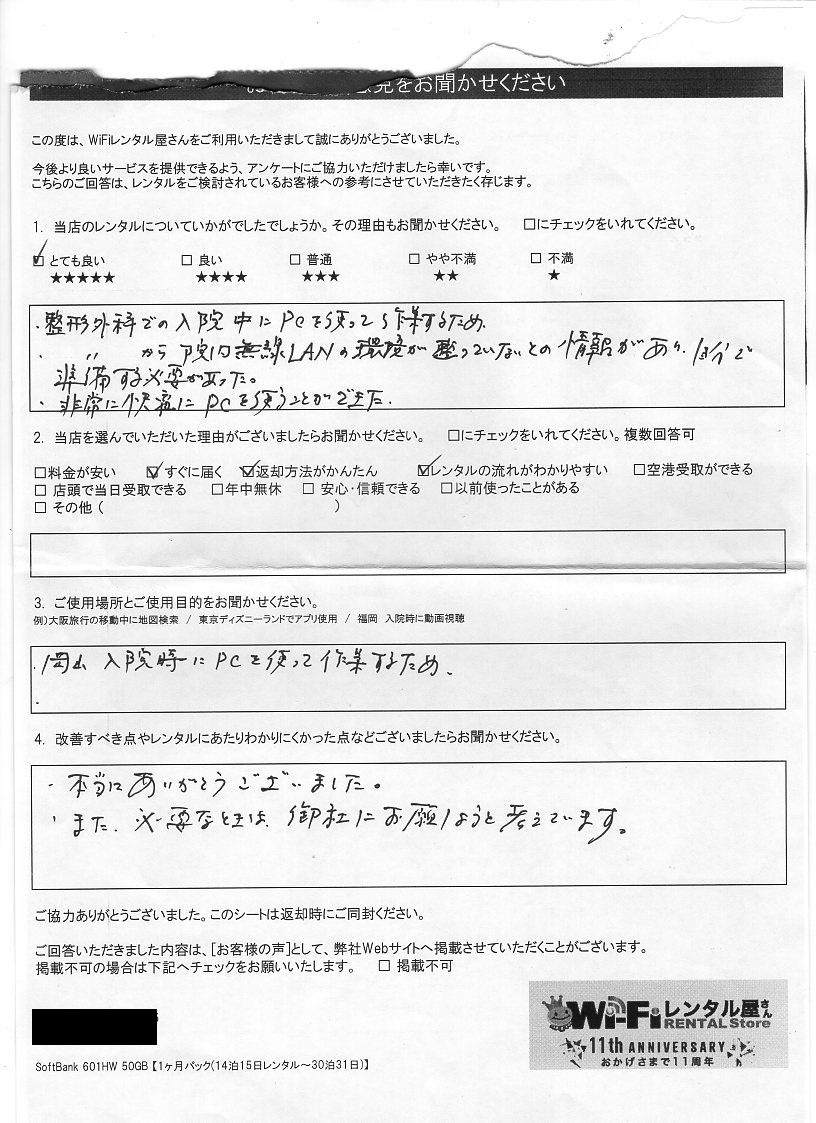 見をお聞かせください
この度は、WiFiレンタル屋さんをご利用いただきまして誠にありがとうございました。
今後より良いサービスを提供できるよう、アンケートにご協力いただけましたら幸いです。
こちらのご回答は、レンタルをご検討されているお客様への参考にさせていただきたく存じます。
1. 当店のレンタルについていかがでしたでしょうか。その理由もお聞かせください。 □にチェックをいれてください。
☑ とても良い □ 良い □ 普通 □ やや不満 □ 不満
★★★★★ ★★★★ ★★★ ★★ ★
・整形外科での入院中にPCを使って作業するため。
・ 〃 から院内無線LANの環境が整っていないとの情報があり、自分で
準備する必要があった。
・非常に快適にPCを使うことができた。
2. 当店を選んでいただいた理由がございましたらお聞かせください。 □にチェックをいれてください。複数回答可
□料金が安い ☑すぐに届く ☑返却方法がかんたん ☑レンタルの流れがわかりやすい □空港受取ができる
□ 店頭で当日受取できる □年中無休 □ 安心・信頼できる □以前使ったことがある
□ その他 ( )
3. ご使用場所とご使用目的をお聞かせください。
例)大阪旅行の移動中に地図検索 / 東京ディズニーランドでアプリ使用 / 福岡 入院時に動画視聴
・岡山 入院時にPCを使って作業するため。
・
4. 改善すべき点やレンタルにあたりわかりにくかった点などございましたらお聞かせください。
・本当にありがとうございました。
・また、必要なときは、御社にお願いしようと考えています。
ご協力ありがとうございました。このシートは返却時にご同封ください。
ご回答いただきました内容は、[お客様の声]として、弊社Webサイトへ掲載させていただくことがございます。
掲載不可の場合は下記へチェックをお願いいたします。 □ 掲載不可
Wi-Fiレンタル屋さん
RENTAL Store
11th ANNIVERSARY
おかげさまで11周年
SoftBank 601HW 50GB【1ヶ月パック(14泊15日レンタル～30泊31日)】